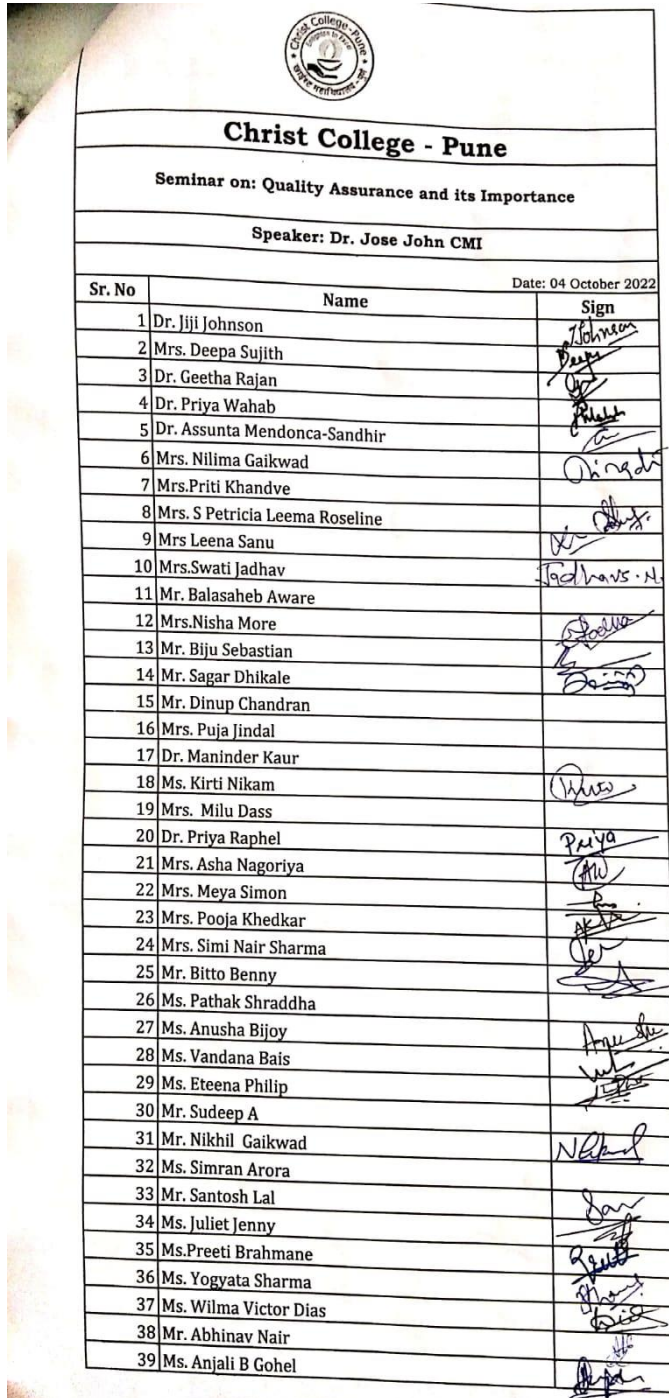 Christ College - Pune
Christ College - Pune
Seminar on: Quality Assurance and its Importance
Speaker: Dr. Jose John CMI
Date: 04 October 2022
Sr. No Name Sign
1 Dr. Jiji Johnson JJohnson
2 Mrs. Deepa Sujith Deepa
3 Dr. Geetha Rajan
4 Dr. Priya Wahab
5 Dr. Assunta Mendonca-Sandhir
6 Mrs. Nilima Gaikwad
7 Mrs.Priti Khandve
8 Mrs. S Petricia Leema Roseline
9 Mrs Leena Sanu
10 Mrs.Swati Jadhav Jadhav S. N.
11 Mr. Balasaheb Aware
12 Mrs.Nisha More
13 Mr. Biju Sebastian
14 Mr. Sagar Dhikale
15 Mr. Dinup Chandran
16 Mrs. Puja Jindal
17 Dr. Maninder Kaur
18 Ms. Kirti Nikam
19 Mrs. Milu Dass
20 Dr. Priya Raphel Priya
21 Mrs. Asha Nagoriya
22 Mrs. Meya Simon
23 Mrs. Pooja Khedkar
24 Mrs. Simi Nair Sharma
25 Mr. Bitto Benny
26 Ms. Pathak Shraddha
27 Ms. Anusha Bijoy
28 Ms. Vandana Bais
29 Ms. Eteena Philip
30 Mr. Sudeep A
31 Mr. Nikhil Gaikwad
32 Ms. Simran Arora
33 Mr. Santosh Lal
34 Ms. Juliet Jenny
35 Ms.Preeti Brahmane
36 Ms. Yogyata Sharma
37 Ms. Wilma Victor Dias
38 Mr. Abhinav Nair
39 Ms. Anjali B Gohel